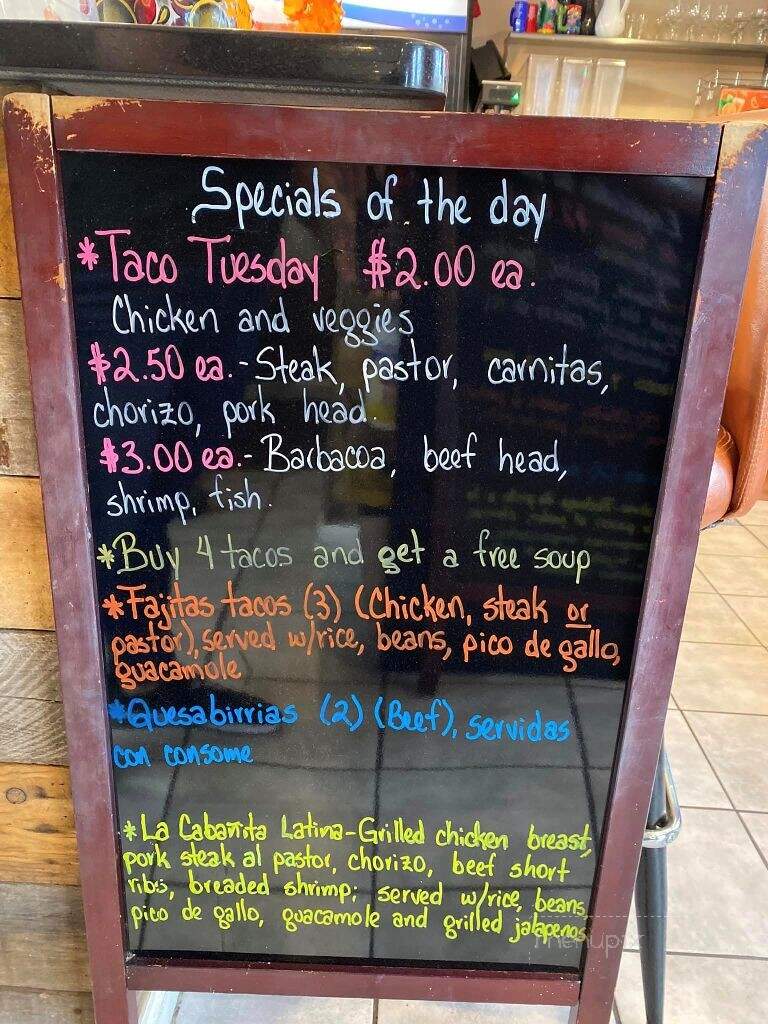 Specials of the day
*Taco Tuesday $2.00 ea.
Chicken and veggies
$2.50 ea.-Steak, pastor, carnitas,
chorizo, pork head.
$3.00 ea.- Barbacoa, beef head,
shrimp, fish.
*Buy 4 tacos and get a free soup
*Fajitas tacos (3) (Chicken, steak or
pastor), served w/rice, beans, pico de gallo,
guacamole
*Quesabirrias (2) (Beef), servidas
con consome
*La Cabañita Latina-Grilled chicken breast,
pork steak al pastor, chorizo, beef short
ribs, breaded shrimp; served w/rice, beans,
pico de gallo, guacamole and grilled jalapenos
menupix